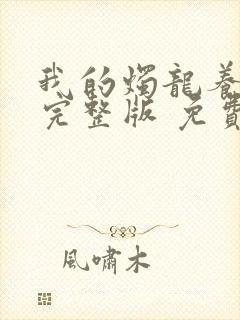 我的燭龍養
完整版 免費
風嘯木